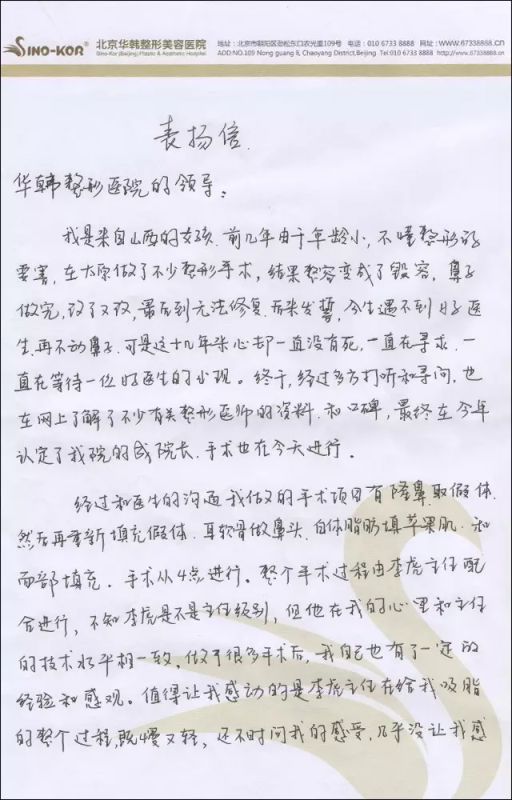 SINO-KOR® 北京华韩整形美容医院 地址：北京市朝阳区劲松东口农光里109号 电话：010 6733 8888 网址：WWW.67338888.cn
Sino-Kor(Beijing)Plastic & Aesthetic Hospital AOD:NO.109 Nong guang li, Chaoyang District,Beijing Tel:010 6733 8888 http://www.67338888.cn
表扬信.
华韩整形医院的领导：
我是来自山西的女孩，前几年由于年龄小，不懂整形的
要害，在太原做了不少整形手术，结果整容变成了毁容，鼻子
做完，改了又改，最后到无法修复.后来发誓，今生遇不到好医
生，再不动鼻子.可是这十几年来心却一直没有死，一直在寻求，一
直在等待一位好医生的出现。终于，经过多方打听和寻问，也
在网上了解了不少有关整形医师的资料，和口碑，最终在今年
认定了我院的院长，手术也在今天进行.
经过和医生的沟通我做的手术项目有隆鼻取假体.
然后再重新填充假体，耳软骨做鼻头，自体脂肪填苹果肌.和
面部填充. 手术从4点进行。整个手术过程由李虎主任配
合进行，不知李虎是不是主任级别，但他在我的心里和主任
的技术水平相一致，做了很多手术后，我自己也有了一定的
经验和感观。值得让我感动的是李虎主任在给我吸脂
的整个过程,既慢又轻，还不时问我的感受，几乎没让我感